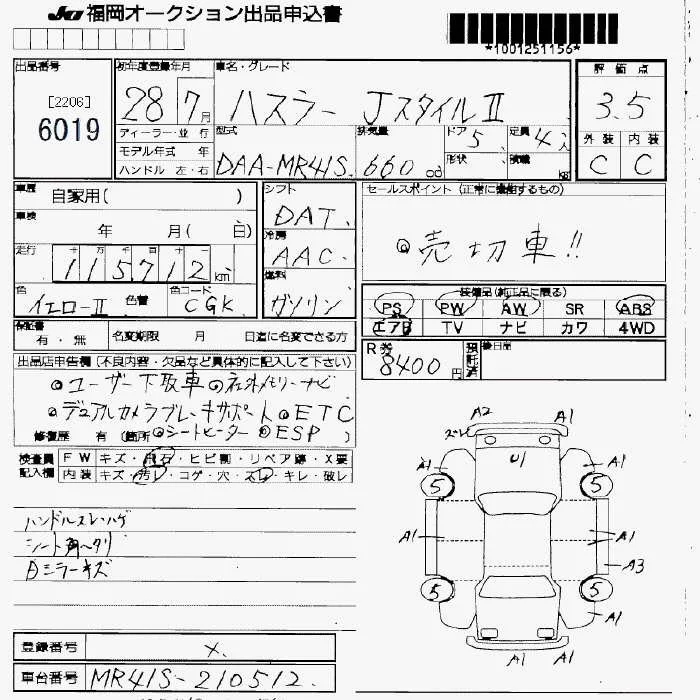 JU 福岡オークション出品申込書
*1001251156*
出品番号 初年度登録年月 車名・グレード 評価点
[2206] 6019
28 7月 ハスラー JスタイルⅡ 3.5
ディーラー・並行 型式 排気量 ドア 5 定員 4人
外装 内装
モデル年式 年
ハンドル 左・右 DAA-MR41S. 660 cc 形状 積載 kg C C
車歴 自家用( ) シフト DAT. セールスポイント (正常に機能するもの)
車検 年 月(日) 冷房 AAC.
◎売切車!!
走行 115712km 燃料 ガソリン
十 万 千 百 十 一
装備品(純正品に限る)
色 イエローⅡ 色替 色コード CGK.
PS PW AW SR ABS
エアB TV ナビ カワ 4WD
保証書 有・無 名変期限 月 日迄に名変できる方
R券 8400円 預託済 後日品
出品店申告欄(不良内容・欠品など具体的に記入して下さい)
◎ユーザー下取車◎社外メモリーナビ
◎デュアルカメラブレーキサポート◎ETC
修復歴 有(箇所 ◎シートヒーター◎ESP
検査員記入欄 FW キズ・飛石・ヒビ割・リペア跡・X要
内装 キズ・汚レ・コゲ・穴・スレ・キレ・破レ
ハンドルスレハゲ
シート角ヘタリ
Bミラーキズ
A2 A1
ズレ
A1 U1 A1
5 5
A1 A1
A3
5 5
A1
A1 A1
登録番号 X.
車台番号 MR41S-210512.